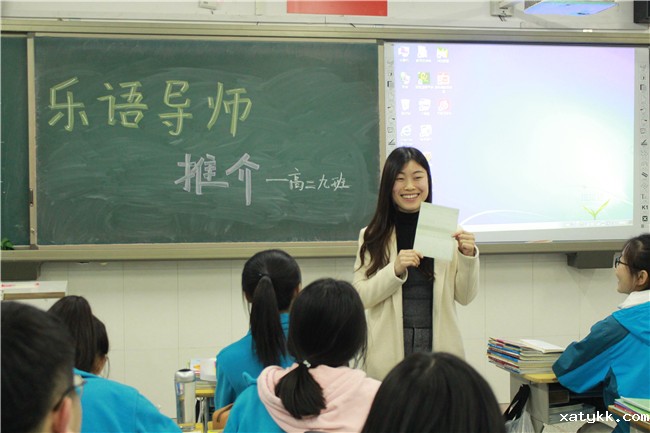 乐语导师
推介—高二九班
www.xatykk.com